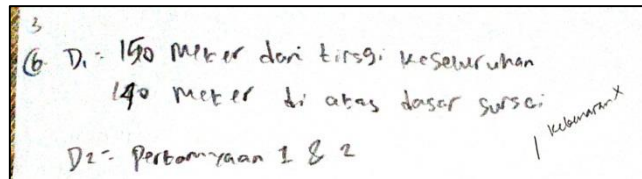 3
6. D₁ = 150 Meter dari tinggi keseluruhan
140 meter di atas dasar sungai
D2 = Pertanyaan 1 & 2
Kebenaran X